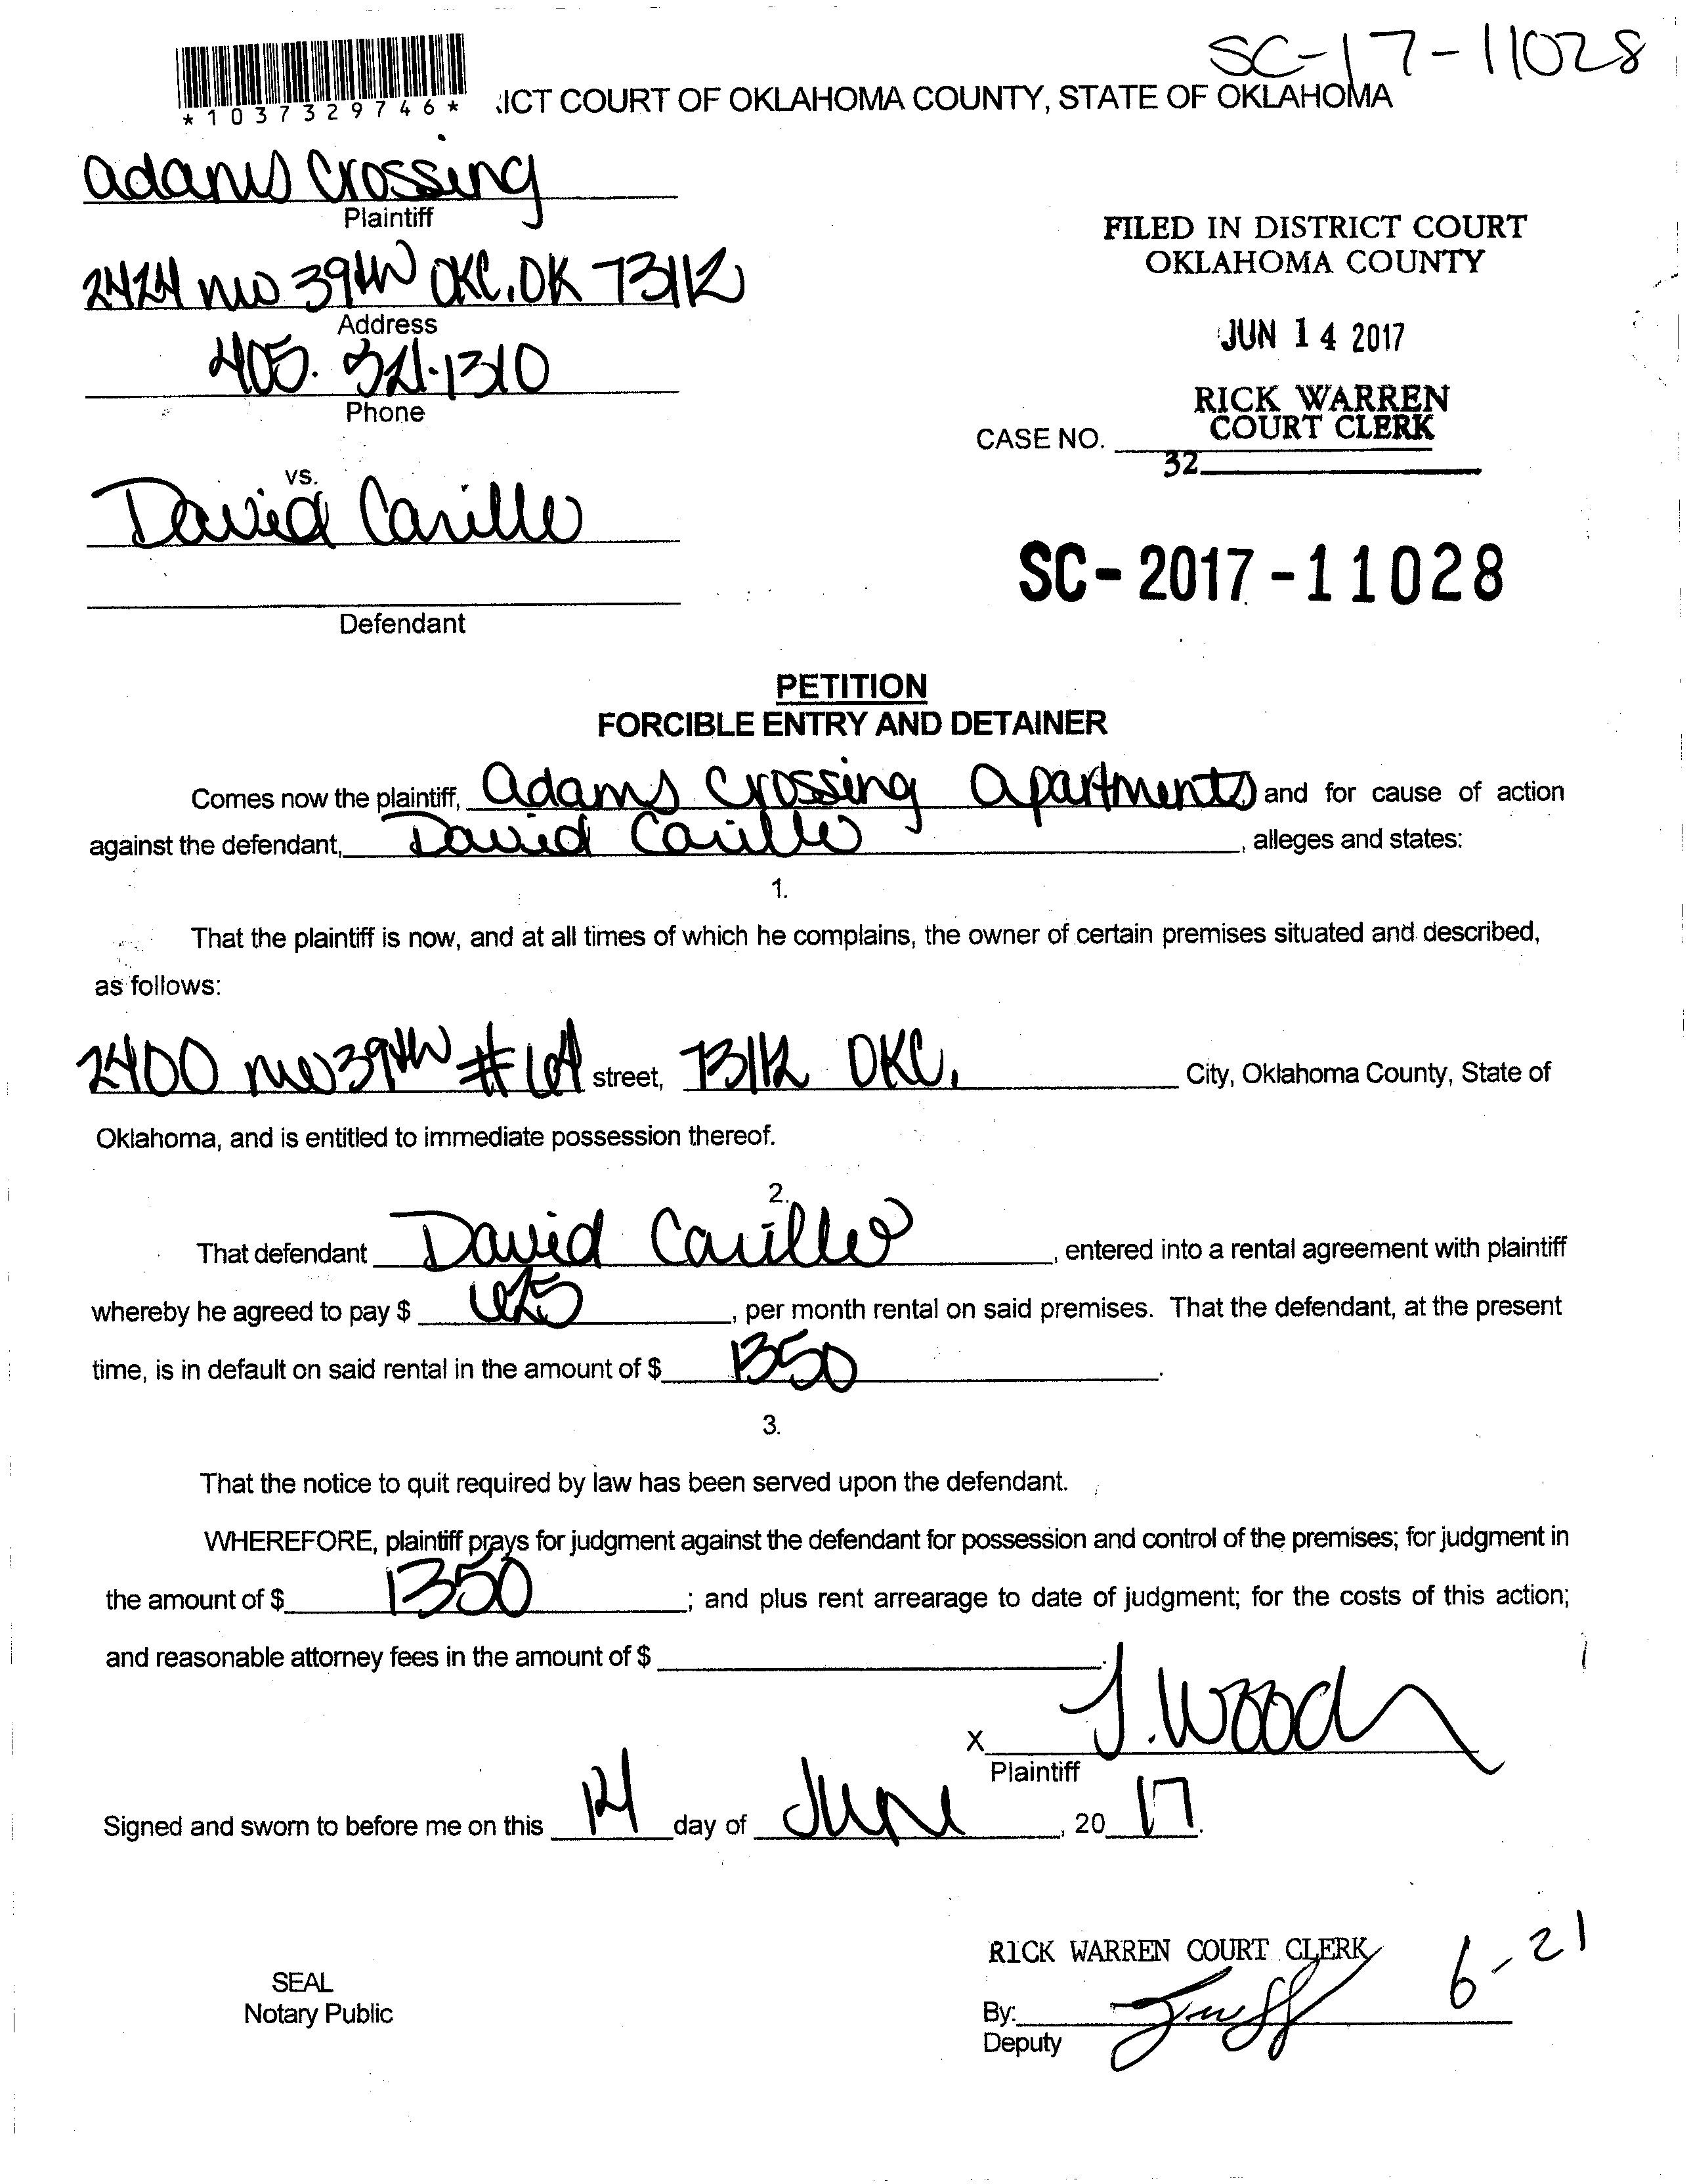 SC-17-11028
*1037329746*
ICT COURT OF OKLAHOMA COUNTY, STATE OF OKLAHOMA
Adams Crossing
Plaintiff
2424 NW 39th OKC, OK 73112
Address
405. 321-1310
Phone
FILED IN DISTRICT COURT
OKLAHOMA COUNTY
JUN 14 2017
RICK WARREN
COURT CLERK
CASE NO.
32
vs.
David Carillo
Defendant
SC-2017-11028
PETITION
FORCIBLE ENTRY AND DETAINER
Comes now the plaintiff, Adams Crossing Apartments and for cause of action
against the defendant, David Carillo, alleges and states:
1.
That the plaintiff is now, and at all times of which he complains, the owner of certain premises situated and described,
as follows:
2400 NW 39th # street, 73112 OKC, City, Oklahoma County, State of
Oklahoma, and is entitled to immediate possession thereof.
2.
That defendant David Carillo, entered into a rental agreement with plaintiff
whereby he agreed to pay $ 625, per month rental on said premises. That the defendant, at the present
time, is in default on said rental in the amount of $ 1350.
3.
That the notice to quit required by law has been served upon the defendant.
WHEREFORE, plaintiff prays for judgment against the defendant for possession and control of the premises; for judgment in
the amount of $ 1350; and plus rent arrearage to date of judgment; for the costs of this action;
and reasonable attorney fees in the amount of $
X J. Woods
Plaintiff
Signed and sworn to before me on this 14 day of June, 20 17.
RICK WARREN COURT CLERK
6-21
SEAL
Notary Public
By:
Deputy